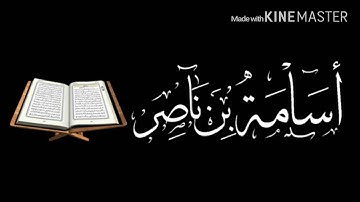 Made with KINEMASTER
أُسَامَة بِن نَاصِر